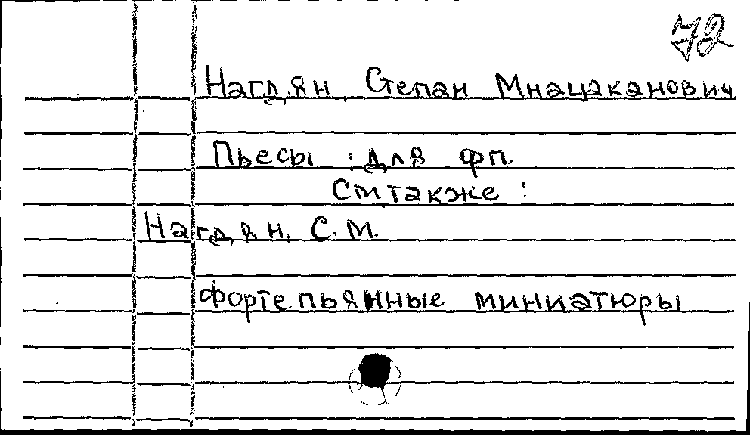 72
Нагдян, Степан Мнацаканович
Пьесы : для фп.
См. также :
Нагдян, С. М.
Фортепьянные миниатюры